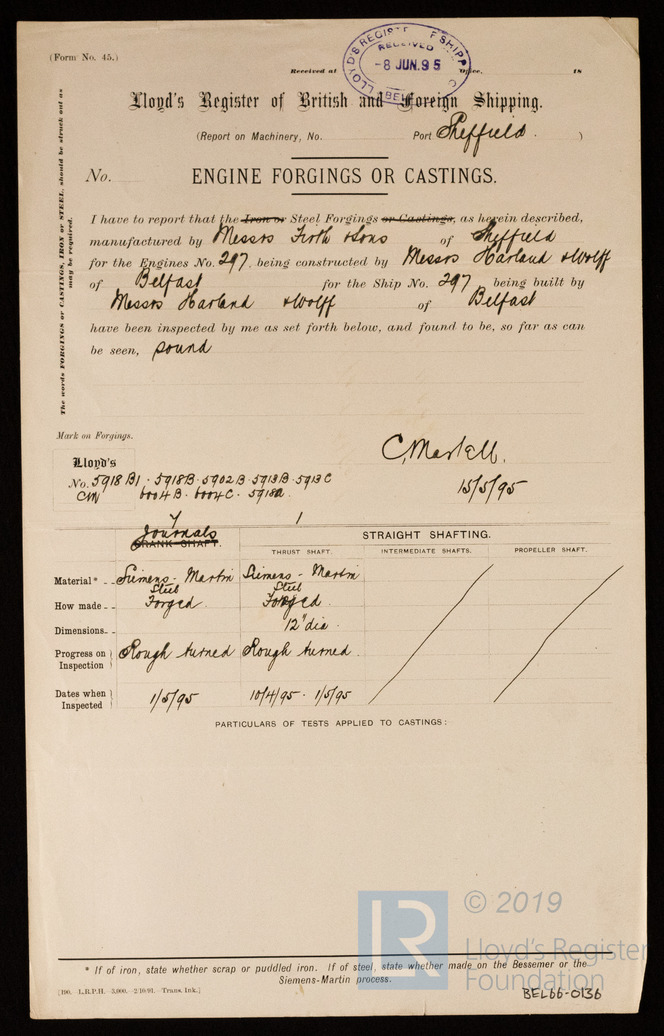 (Form No. 45.)
LLOYD'S REGISTER OF SHIPP
RECEIVED
-8 JUN.95
BEL
Received at Office, 18
Lloyd's Register of British and Foreign Shipping.
(Report on Machinery, No. Port Sheffield. )
No. ENGINE FORGINGS OR CASTINGS.
The words FORGINGS or CASTINGS, IRON or STEEL, should be struck out as
may be required.
I have to report that the Iron or Steel Forgings or Castings, as herein described,
manufactured by Messrs Firth & Sons of Sheffield
for the Engines No. 297, being constructed by Messrs Harland & Wolff
of Belfast for the Ship No. 297 being built by
Messrs Harland & Wolff of Belfast
have been inspected by me as set forth below, and found to be, so far as can
be seen, sound
Mark on Forgings.
C. Martell.
Lloyd's
No. 5918 B1 · 5918B · 5902 B · 5913B · 5913 C
CM 6004 B · 6004 C · 5918a
15/5/95
7 1
Journals
CRANK SHAFT.
STRAIGHT SHAFTING.
THRUST SHAFT. INTERMEDIATE SHAFTS. PROPELLER SHAFT.
Material* Siemens-Martin Steel Siemens-Martin Steel
How made Forged Forged
Dimensions 12" dia
Progress on Inspection Rough turned Rough turned.
Dates when Inspected 1/5/95 10/4/95 · 1/5/95
PARTICULARS OF TESTS APPLIED TO CASTINGS:
* If of iron, state whether scrap or puddled iron. If of steel, state whether made on the Bessemer or the
Siemens-Martin process.
[190. -L.R.P.H. -3,000. -2/10/91. -Trans. Ink.]
BEL66-0136
LR
© 2019
Lloyd's Register
Foundation